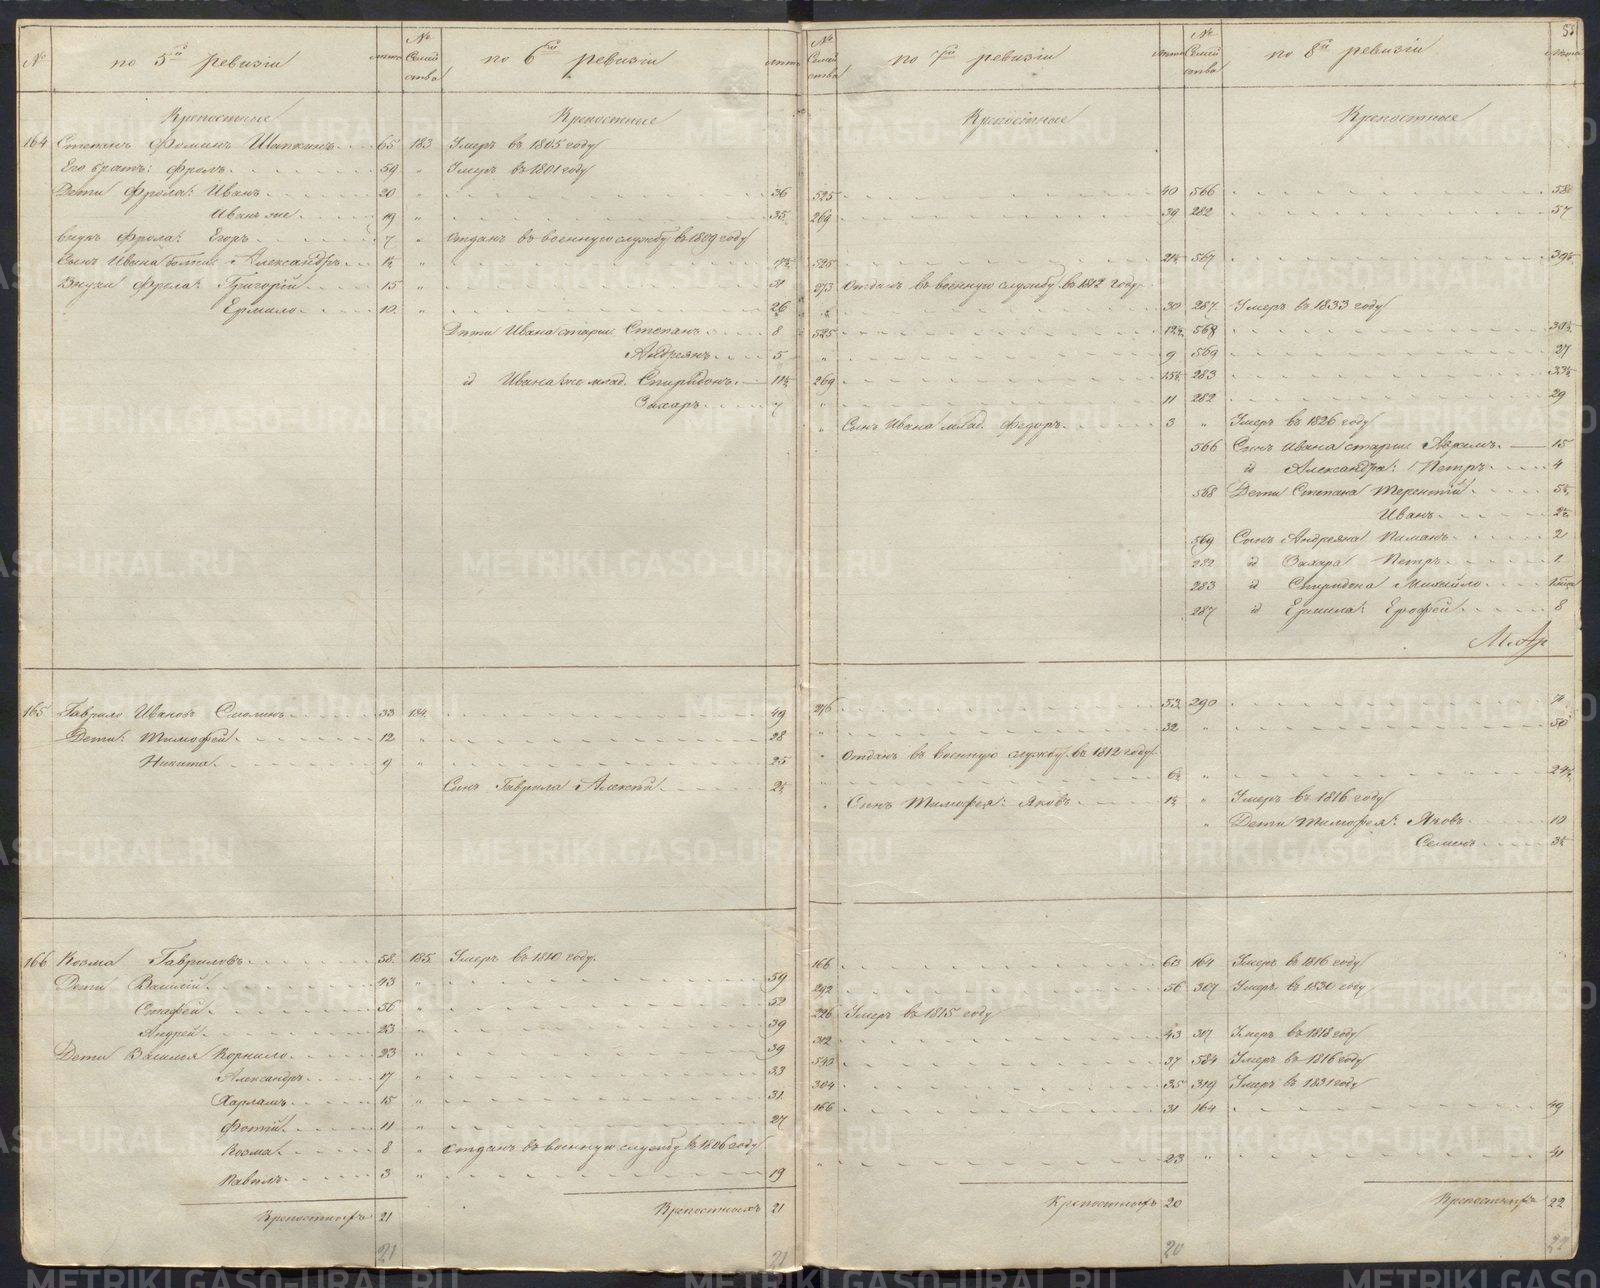 № по 5й ревизіи лета № Семейства по 6й ревизіи лета
Крепостные Крепостные
164 Степанъ Фоминъ Шапкинъ 65 183 Умеръ въ 1805 году
Его братъ: Фролъ 59 " Умеръ въ 1801 году
Дети Фрола: Иванъ 20 " 36
Иванъ же 19 " 35
внукъ Фрола: Егоръ 7 " Отданъ въ военную службу въ 1809 году
Сынъ Ивана больш: Александръ 1½ " 17½
Внуки Фрола: Григорій 15 " 31
Ермило 10 " 26
Дети Ивана старш: Степанъ 8
Андреянъ 5
id Ивана же млад. Спиридонъ 11½
Захаръ 7
165 Гаврило Ивановъ Смолинъ 33 184 49
Дети: Тимофей 12 " 28
Никита 9 " 25
Сынъ Гаврила Алексей 2½
166 Козма Гавриловъ 58 185 Умеръ въ 1810 году.
Дети Василій 43 " 59
Стафей 36 " 52
Андрей 23 " 39
Дети Василья Корнило 23 " 39
Александръ 17 " 33
Харламъ 15 " 31
Фотій 11 " 27
Козма 8 " Отданъ въ военную службу въ 1806 году
Павелъ 3 " 19
Крепостныхъ 21 Крепостныхъ 21
21 21
№ Семейства по 7й ревизіи лета № Семейства по 8й ревизіи лета
Крепостные Крепостные
525 40 566 58
269 39 282 57
525 21½ 567 39½
273 Отданъ въ военную службу въ 1812 году
" 30 287 Умеръ въ 1833 году
525 12½ 568 30½
" 9 569 27
269 15½ 283 33½
" 11 282 29
" Сынъ Ивана млад. Федоръ 3 " Умеръ въ 1826 году
566 Сынъ Ивана старш: Абрамъ 15
id Александра: Петръ 4
568 Дети Степана Терентій 5½
Иванъ 2½
569 Сынъ Андреяна Пиманъ 2
282 id Захара Петръ 1
283 id Спиридона Михайло
287 id Ермила: Ерофей 8
276 53 290 71
" 32 " 50
" Отданъ въ военную службу въ 1812 году
" 6½ " 24½
" Сынъ Тимофея: Яковъ 1½ " Умеръ въ 1816 году
" Дети Тимофея: Яковъ 10
Семенъ 3½
166 63 164 Умеръ въ 1816 году
292 56 307 Умеръ въ 1830 году
226 Умеръ въ 1815 году
302 43 317 Умеръ въ 1818 году
540 37 584 Умеръ въ 1816 году
304 35 319 Умеръ въ 1831 году
166 31 164 49
" 23 " 41
Крепостныхъ 20 Крепостныхъ 22
20 22
METRIKI.GASO-URAL.RU